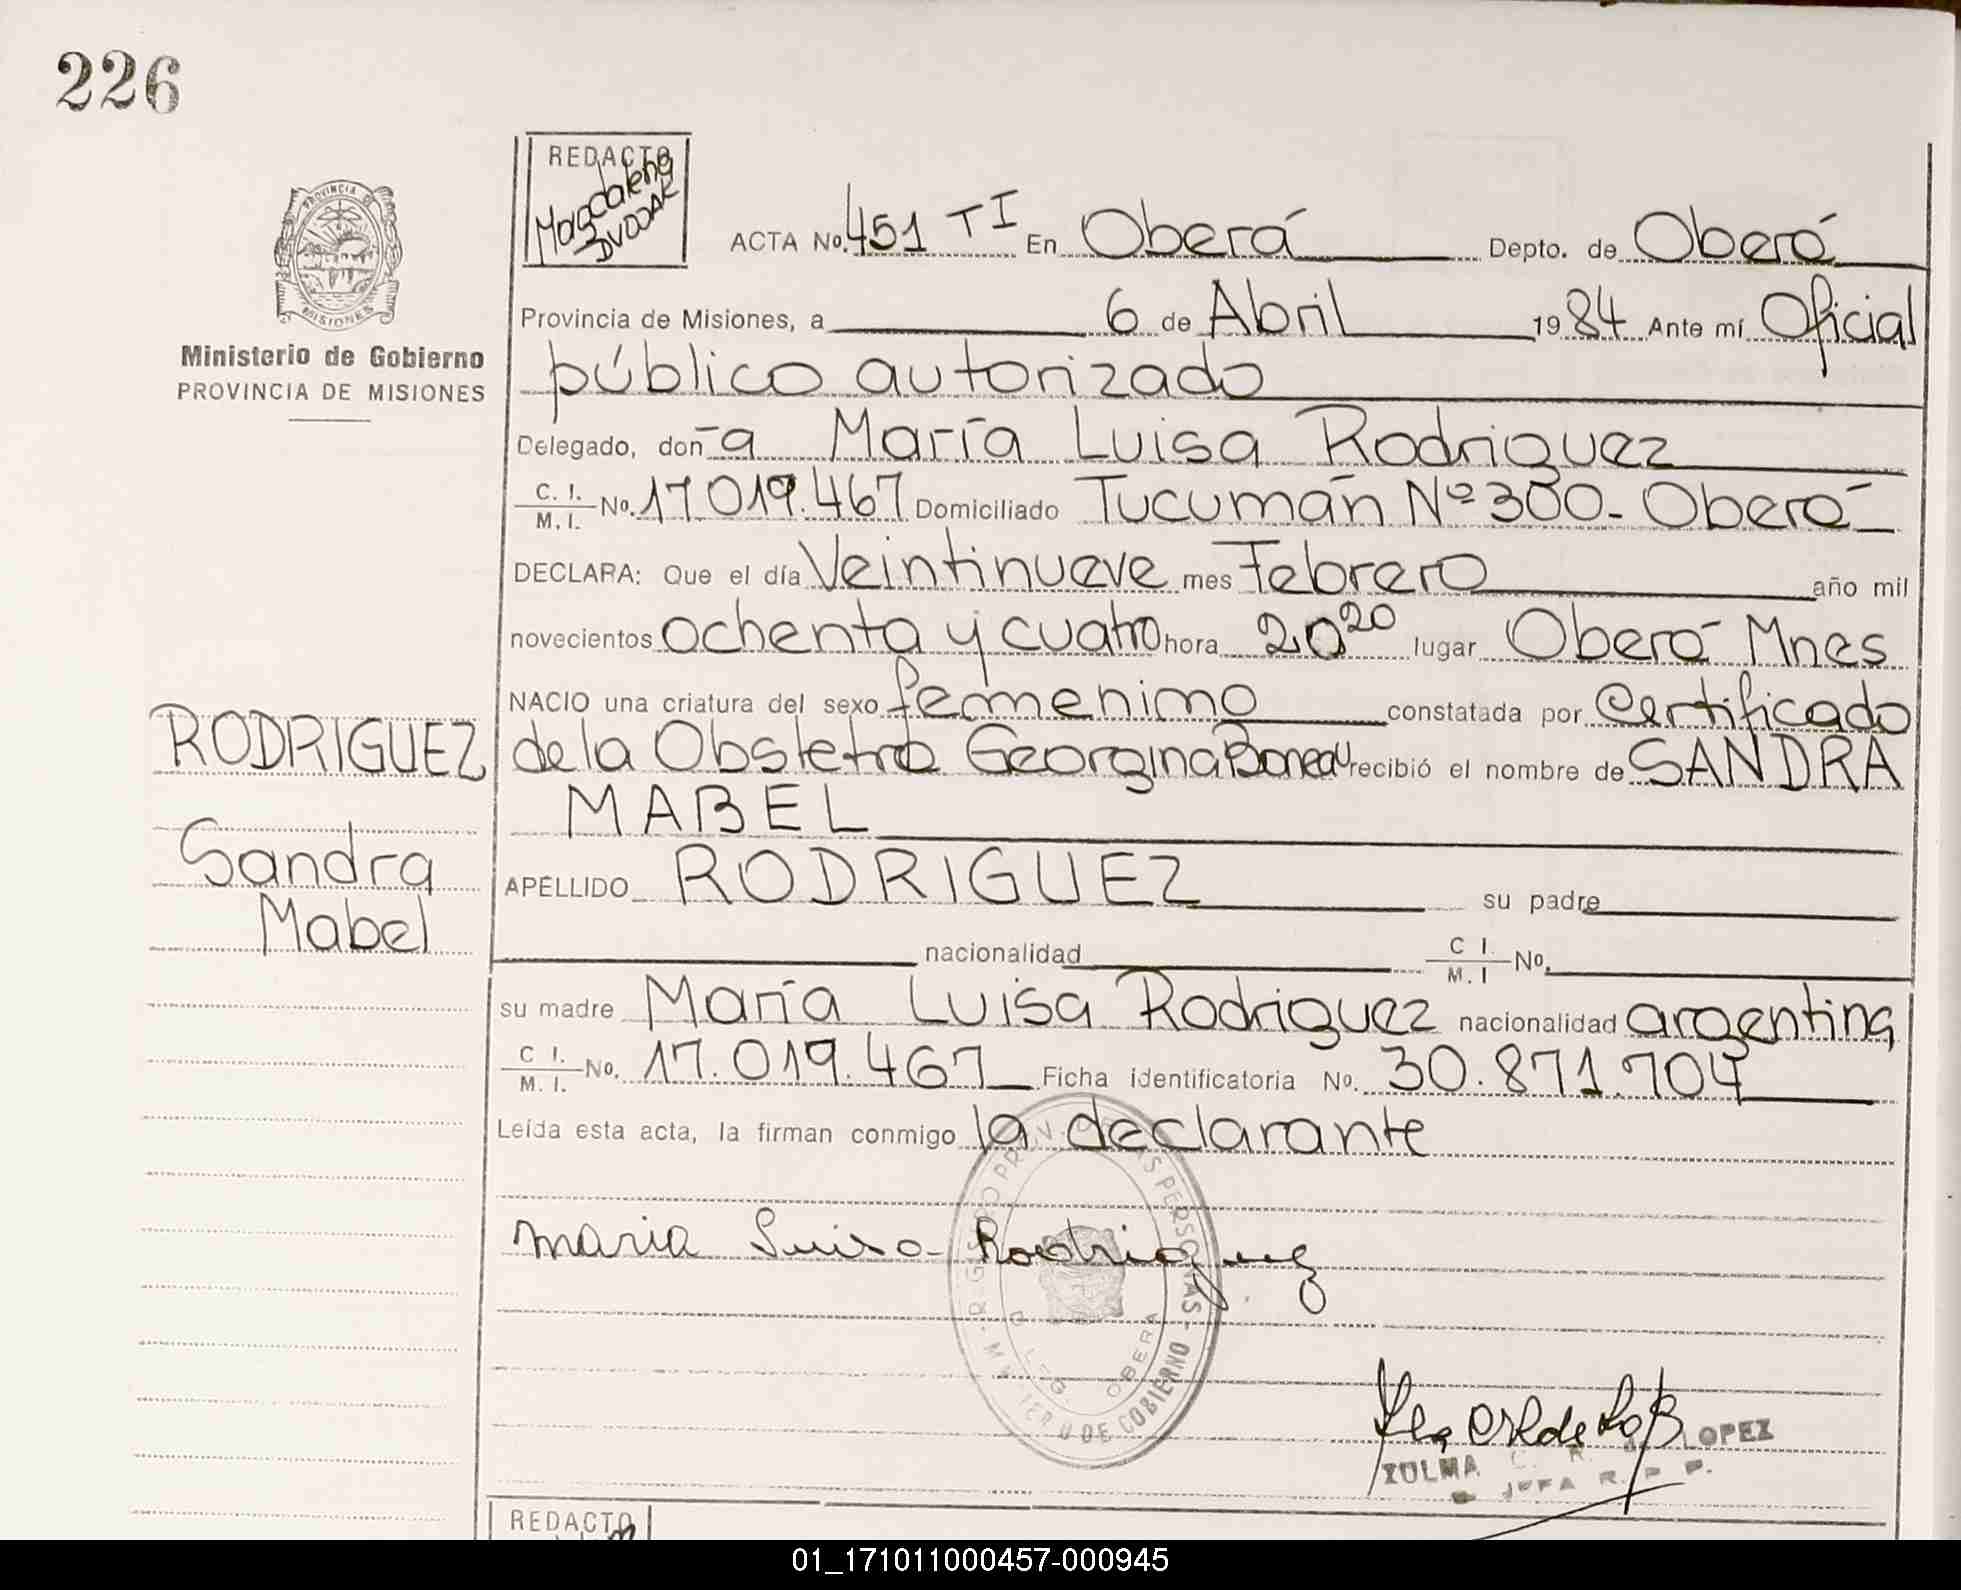 226
REDACTO
Magdalena
DVOJAK
PROVINCIA DE
MISIONES
Ministerio de Gobierno
PROVINCIA DE MISIONES
ACTA No. 451 TI En Oberá Depto. de Oberá
Provincia de Misiones, a 6 de Abril 1984 Ante mí Oficial
público autorizado
Delegado, don-a María Luisa Rodriguez
C. I. / M. I. No. 17.019.467 Domiciliado Tucumán Nº 300- Oberá
DECLARA: Que el día Veintinueve mes Febrero año mil
novecientos ochenta y cuatro hora 20 20 lugar Oberá Mnes
NACIO una criatura del sexo femenino constatada por Certificado
de la Obstetra Georgina Boneau recibió el nombre de SANDRA
MABEL
RODRIGUEZ
Sandra
Mabel
APELLIDO RODRIGUEZ su padre
nacionalidad C I. / M. I No.
su madre María Luisa Rodriguez nacionalidad argentina
C I. / M. I. No. 17.019.467 Ficha identificatoria No. 30.871.704
Leída esta acta, la firman conmigo la declarante
maria Luisa Rodriguez
PERSONAS
DE GOBIERNO
OBERA
ZULMA C. R. LOPEZ
JEFA R. P. P.
REDACTO
01_171011000457-000945